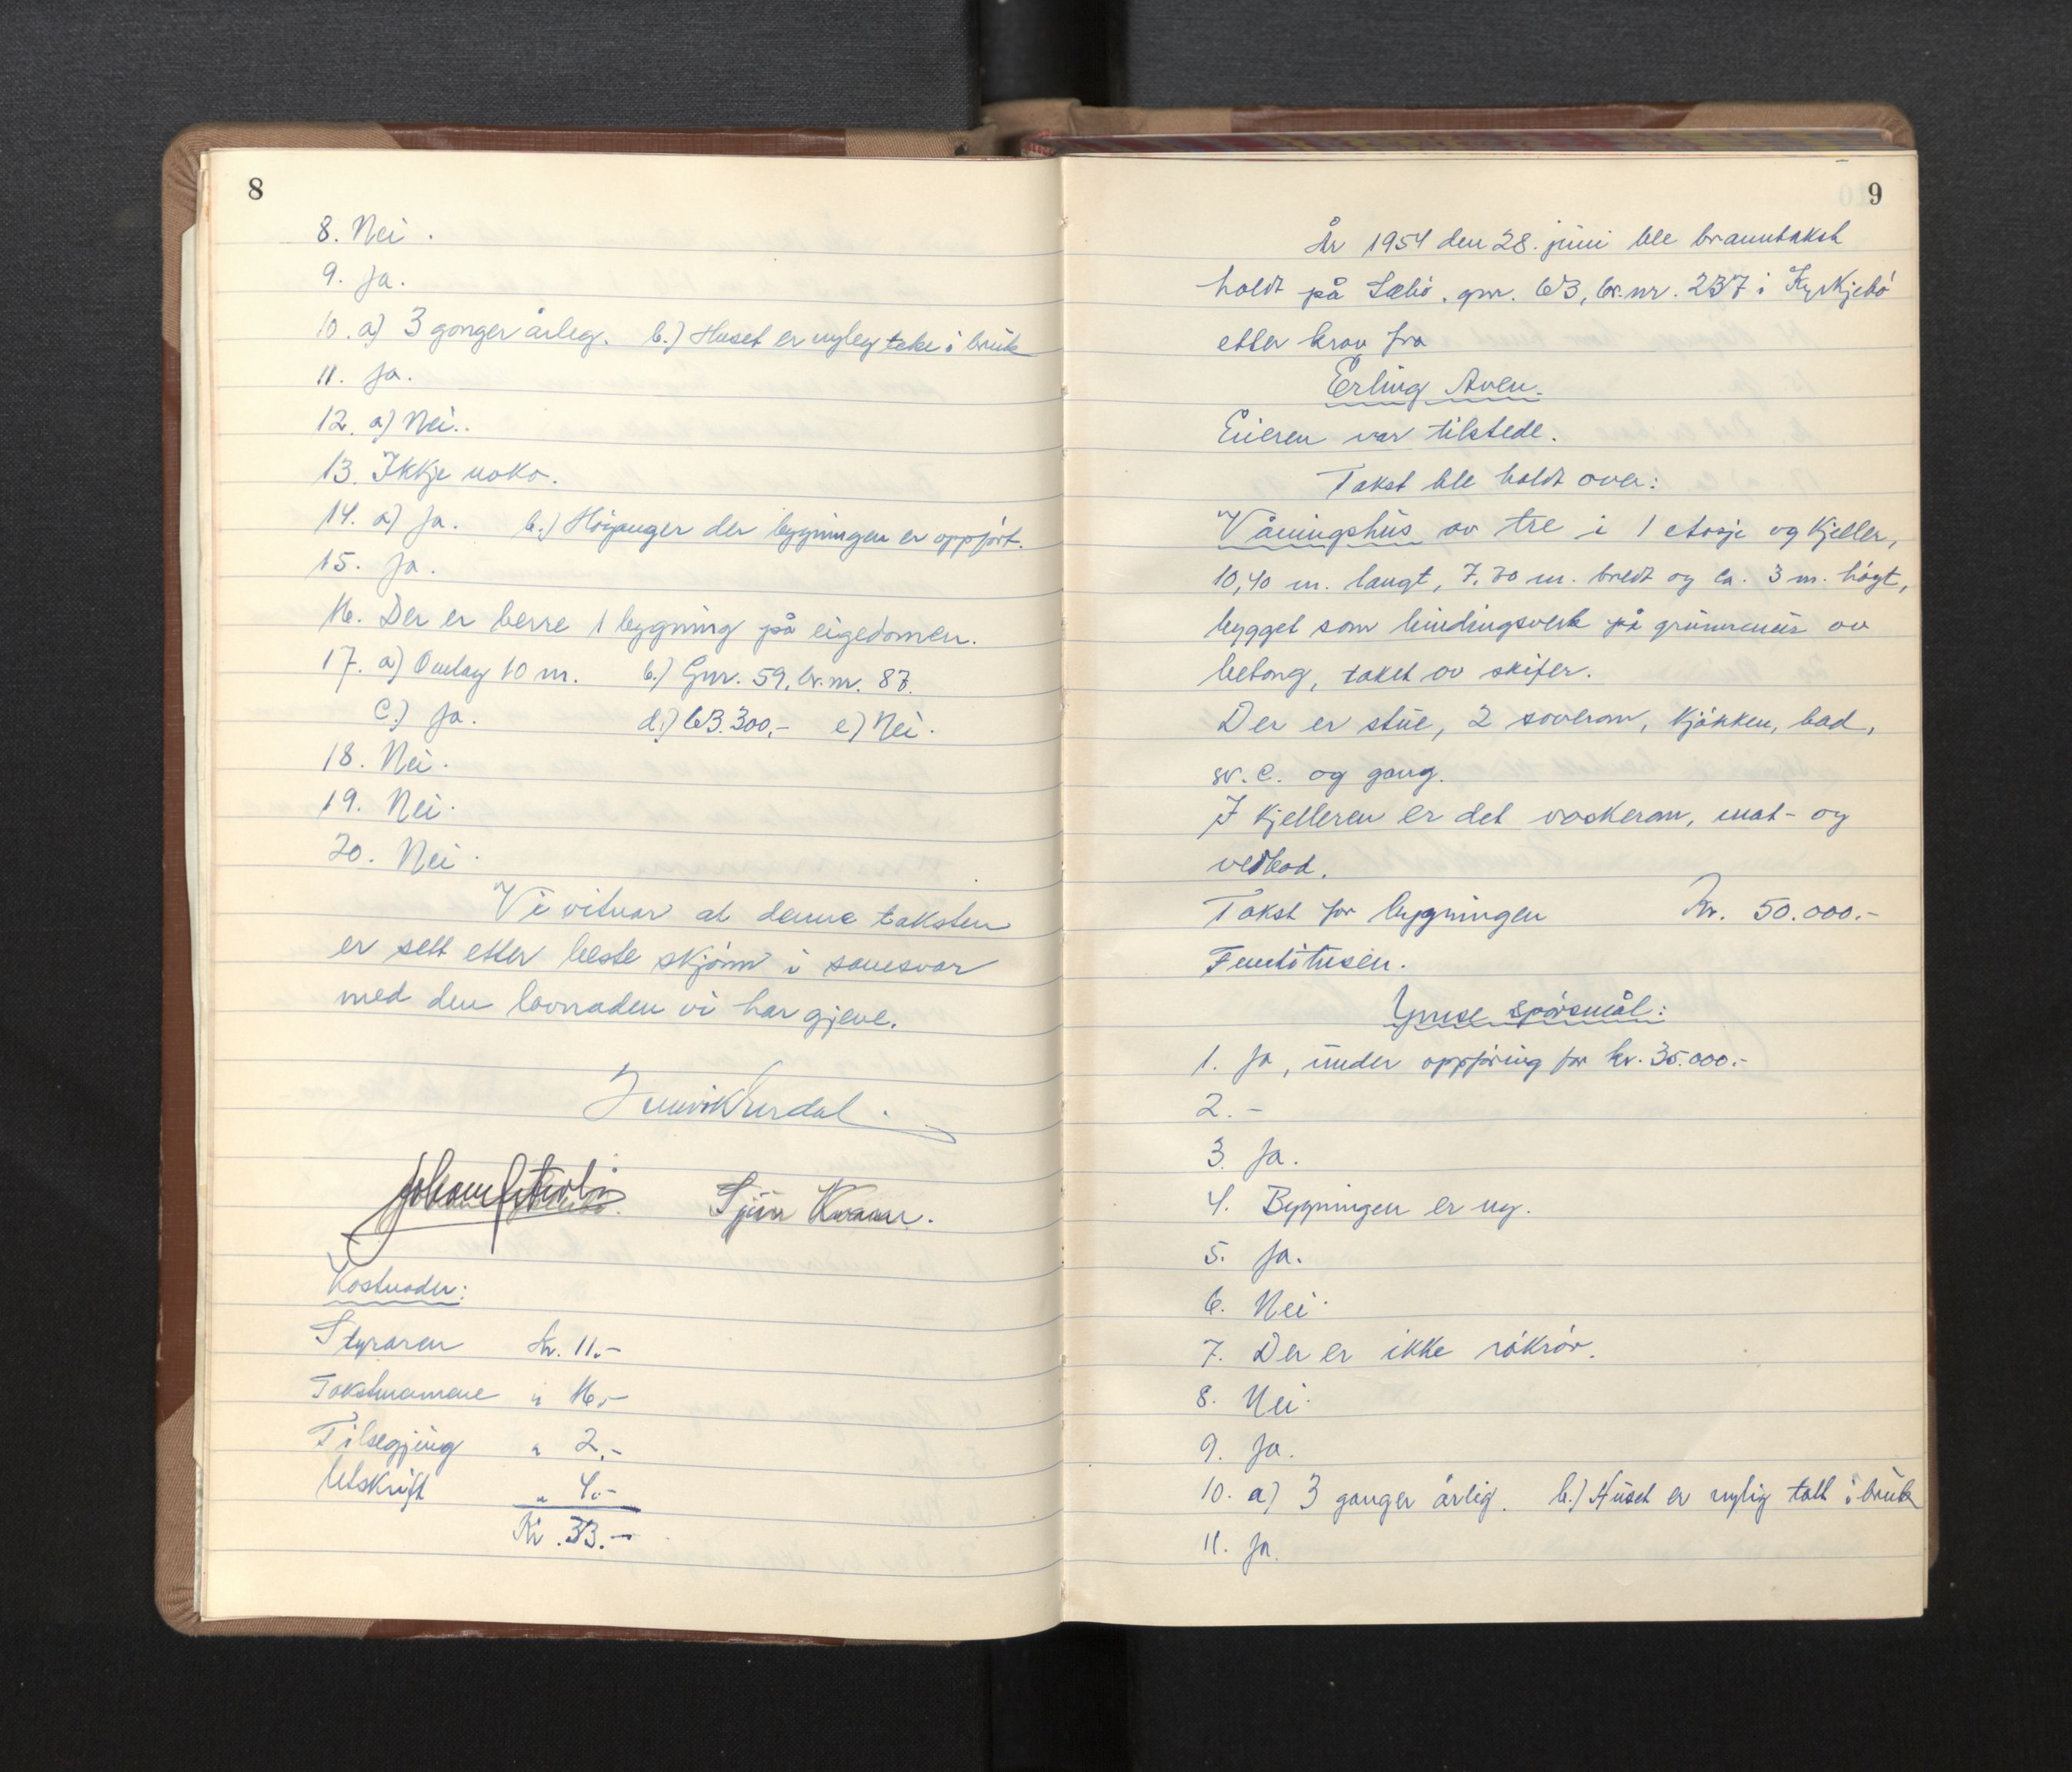 8
8. Nei.
9. Ja.
10. a) 3 gonger årleg. b.) Huset er nyleg teke i bruk
11. Ja.
12. a) Nei..
13. Ikkje noko.
14. a) Ja. b.) Höyanger der bygningen er oppfört.
15. Ja.
16. Der er berre 1 bygning på eigedomen.
17. a) Omlag 10 m. b.) Gnr. 59, br.nr. 87.
c.) Ja. d.) 63.300,- e) Nei.
18. Nei.
19. Nei.
20. Nei.
Vi vitnar at denne taksten
er sett etter beste skjönn i samsvar
med den lovnaden vi har gjeve.
Kostnader:
Styraren kr. 11.-
Takstmennene " 16,-
Tilsegjing " 2.-
Utskrift " 4.-
Kr. 33.-
9
År 1954 den 28. juni ble branntakst
holdt på Sæbö. gnr. 63, br.nr. 237 i Kyrkjebö
etter krav fra
Erling Aven.
Eieren var tilstede.
Takst ble holdt over:
Våningshus av tre i 1 etasje og kjeller,
10,40 m. langt, 7.70 m. bredt og ca. 3 m. högt,
bygget som bindingsverk på grunnmur av
betong, taket av skifer.
Der er stue, 2 soverom, kjökken, bad,
w.c. og gang.
I kjelleren er det vaskerom, mat- og
vedbod.
Takst for bygningen Kr. 50.000.-
Femtitusen.
Ymse spörsmål:
1. Ja, under oppföring for kr. 35.000.-
2. -
3. Ja.
4. Bygningen er ny.
5. Ja.
6. Nei.
7. Der er ikke rökrör.
8. Nei.
9. Ja.
10. a) 3 ganger årlig. b.) Huset er nylig tatt i bruk
11. Ja.